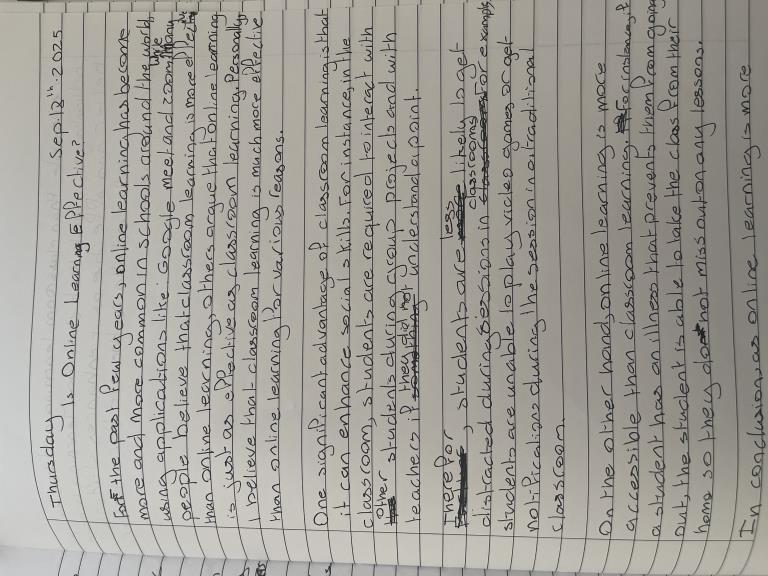 Thursday Sep. 18th. 2025
Is Online Learning Effective?
For the past few years, online learning has become
more and more common in schools around the world,
using applications like: Google meet and zoom. While many
people believe that classroom learning is more effective
than online learning, others argue that online learning
is just as effective as classroom learning. Personally,
I believe that classroom learning is much more effective
than online learning for various reasons.
One significant advantage of classroom learning is that
it can enhance social skills. For instance, in the
classroom, students are required to interact with
other students during group projects and with
teachers if they did not understand a point.
Therefor, students are less likely to get
distracted during sessions in classrooms for example,
students are unable to play video games or get
notifications during the session in a traditional
classroom.
On the other hand, online learning is more
accessible than classroom learning. For instance, if
a student has an illness that prevents them from going
out, the student is able to take the class from their
home so they do not miss out on any lessons.
In conclusion, as online learning is more